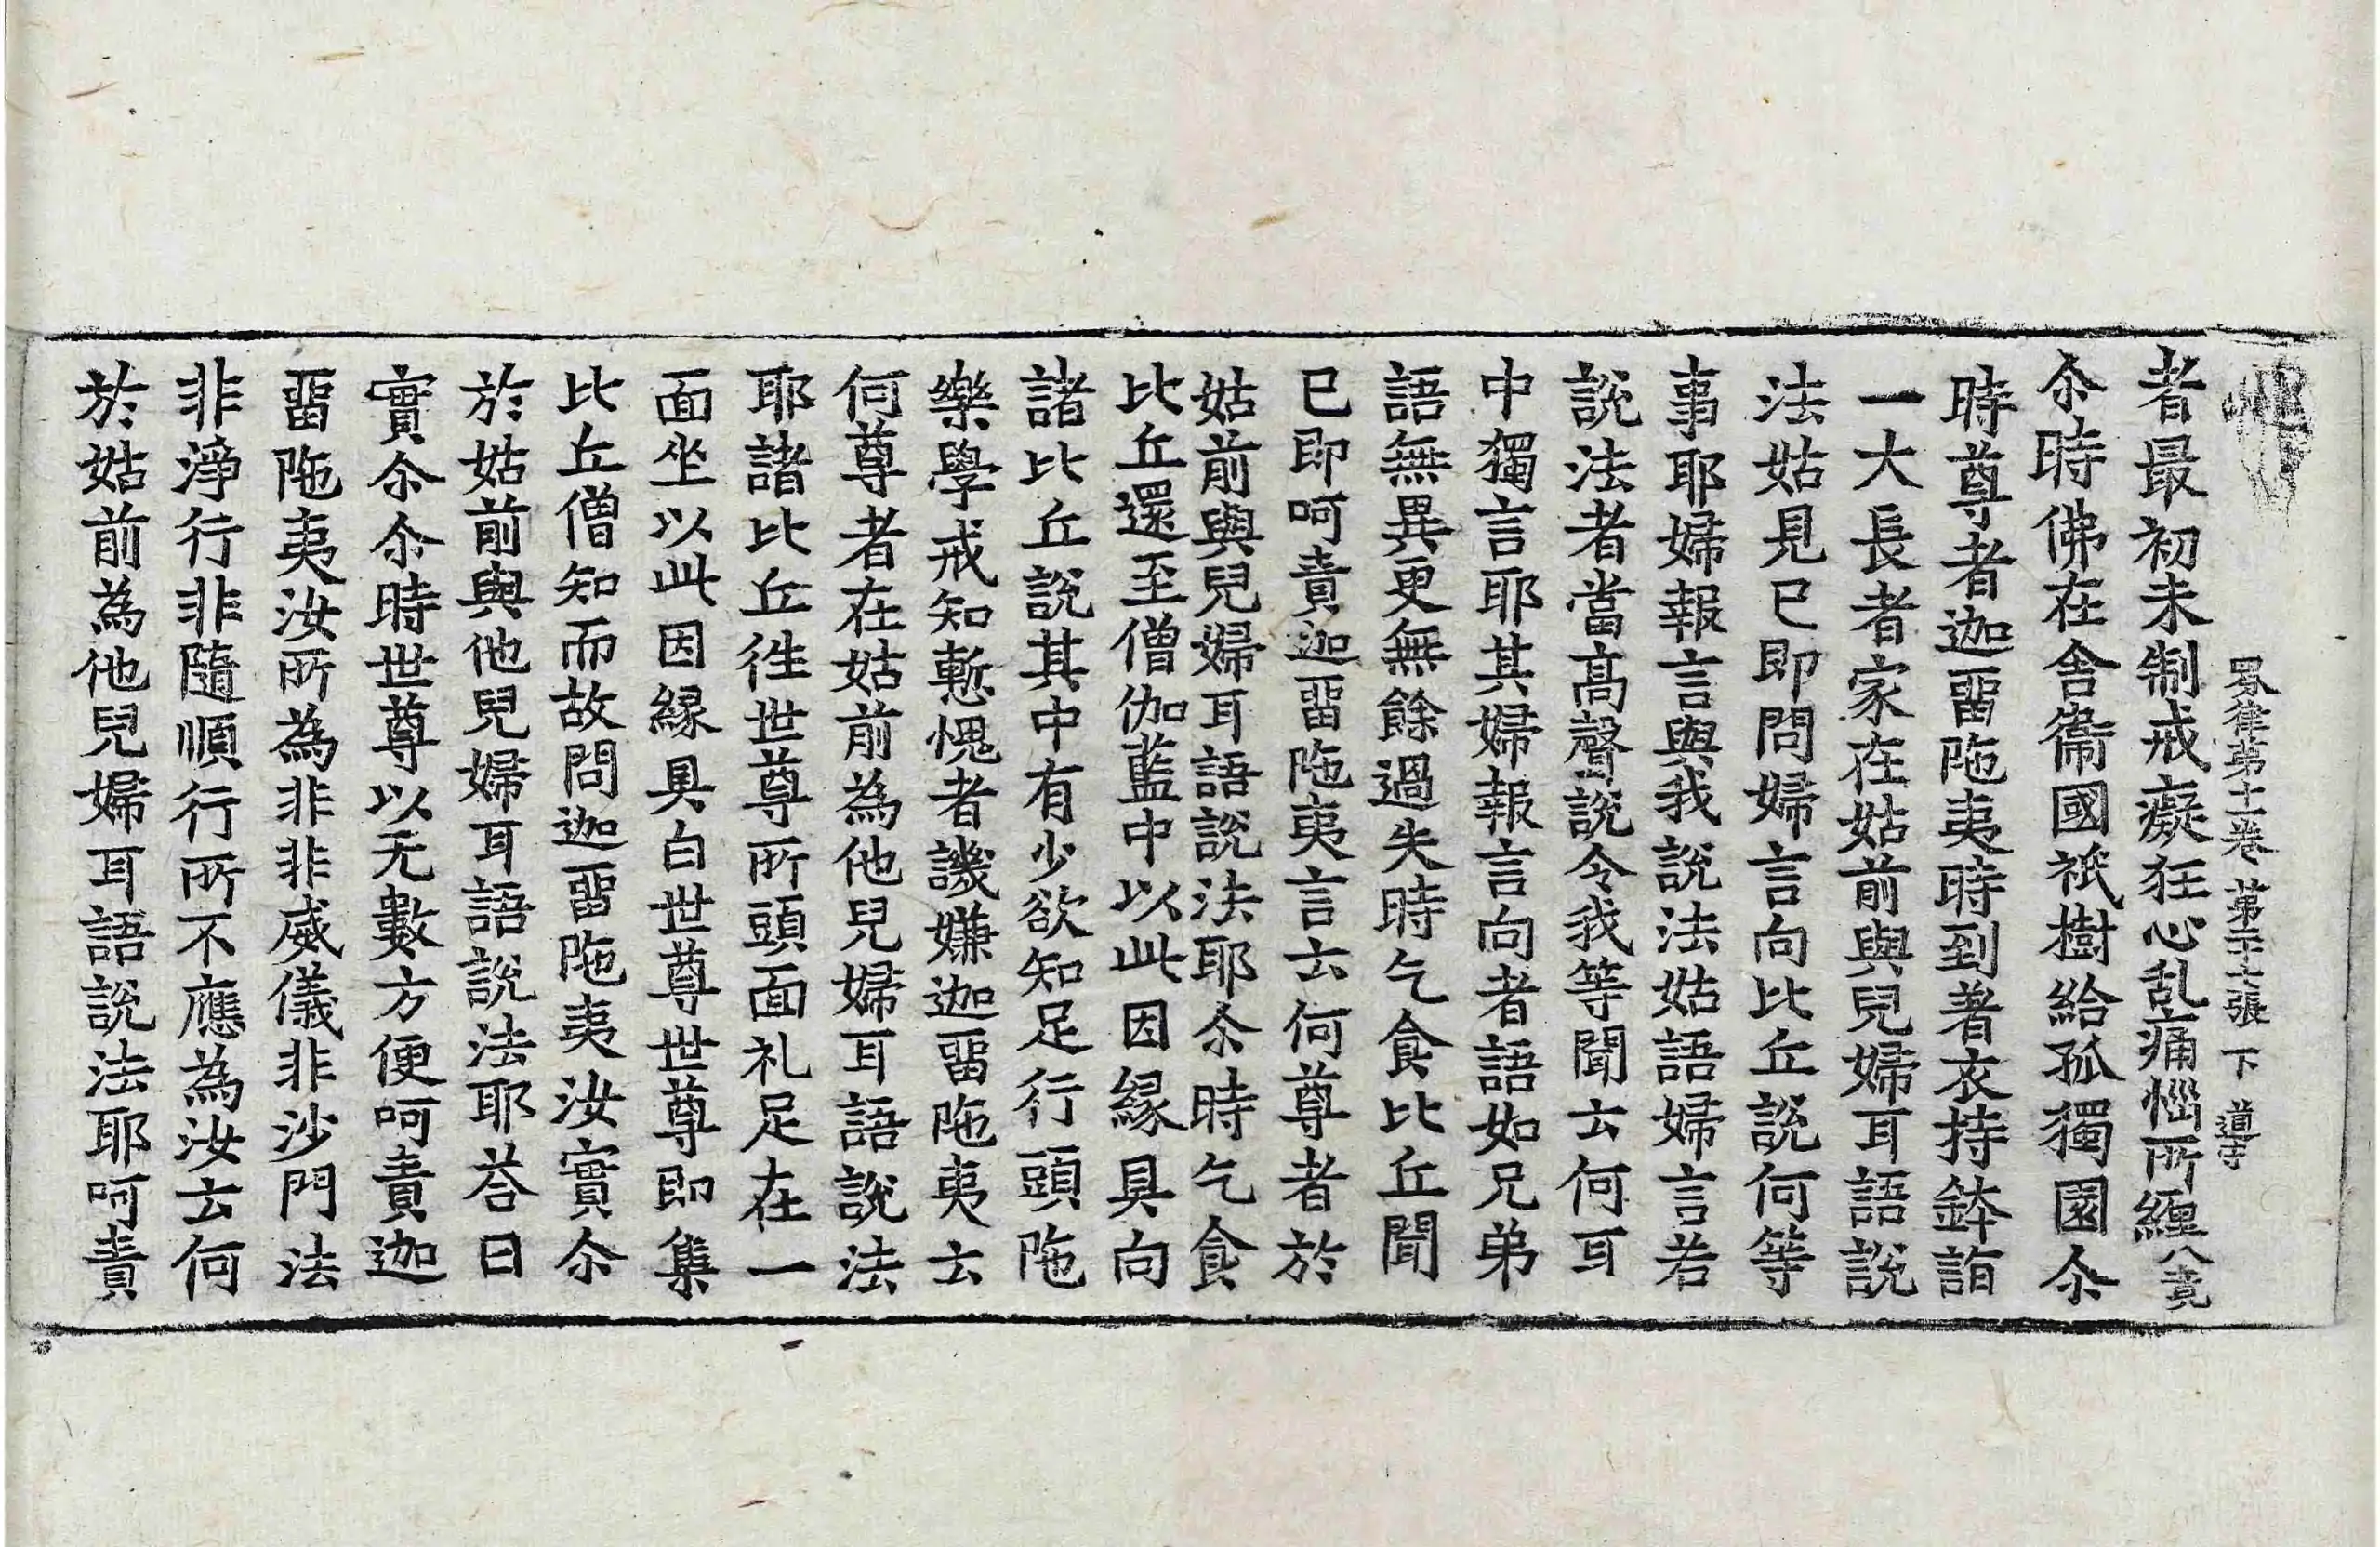 四分律第十一卷 第二十六張 下 道守
者最初未制戒癡狂心乱痛惱所纒八竟
尒時佛在舍衞國祇樹給孤獨園尒
時尊者迦畱陁夷時到著衣持鉢詣
一大長者家在姑前與兒婦耳語說
法姑見已即問婦言向比丘說何等
事耶婦報言與我說法姑語婦言若
說法者當高聲說令我等聞云何耳
中獨言耶其婦報言向者語如兄弟
語無異更無餘過失時乞食比丘聞
已即呵責迦畱陁夷言云何尊者於
姑前與兒婦耳語說法耶尒時乞食
比丘還至僧伽藍中以此因緣具向
諸比丘說其中有少欲知足行頭陁
樂學戒知慙愧者譏嫌迦畱陁夷云
何尊者在姑前為他兒婦耳語說法
耶諸比丘徃世尊所頭面礼足在一
面坐以此因緣具白世尊世尊即集
比丘僧知而故問迦畱陁夷汝實尒
於姑前與他兒婦耳語說法耶荅曰
實尒尒時世尊以无數方便呵責迦
畱陁夷汝所為非非威儀非沙門法
非淨行非隨順行所不應為汝云何
於姑前為他兒婦耳語說法耶呵責